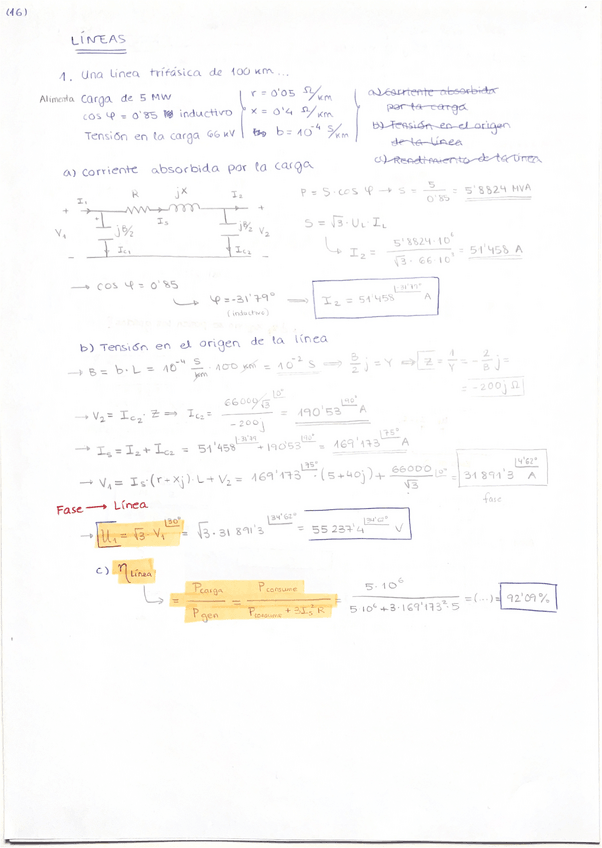 (16)
LÍNEAS
1. Una línea trifásica de 100 km...
Alimenta carga de 5 MW
cos φ = 0'85 inductivo
Tensión en la carga 66 kV
r = 0'05 Ω/km
x = 0'4 Ω/km
b = 10⁻⁴ S/km
a) Corriente absorbida
por la carga
b) Tensión en el origen
de la línea
c) Rendimiento de la línea
a) corriente absorbida por la carga
I₁ R jX I₂
+ + V₁ jB/2 I_S jB/2 V₂
I_C1 I_C2
P = S · cos φ → S = 5/0'85 = 5'8824 MVA
S = √3 · U_L · I_L
I₂ = 5'8824·10⁶/√3·66·10³ = 51'458 A
→ cos φ = 0'85
φ = -31'79° ⇒ I₂ = 51'458 |-31'79° A
(inductivo)
b) Tensión en el origen de la línea
→ B = b·L = 10⁻⁴ S/km · 100 km = 10⁻² S ⇒ B/2 j = Y ⇔ Z = 1/Y = -2/B j =
= -200j Ω
→ V₂ = I_C2 · Z ⇒ I_C2 = 66000/√3 |0°/-200j = 190'53 |90° A
→ I_S = I₂ + I_C2 = 51'458 |-31'79 + 190'53 |90° = 169'173 |75° A
→ V₁ = I_S·(r+xj)·L + V₂ = 169'173 |75° · (5+40j) + 66000/√3 |0° = 31891'3 |4'62° A
fase
Fase → Línea
→ U₁ = √3·V₁ |30° = √3 · 31891'3 |34'62° = 55237'4 |34'62° V
c) η Línea
= Pcarga/Pgen = Pconsume/Pconsume + 3I_S²R = 5·10⁶/5·10⁶+3·169'173²·5 = (...) = 92'09%